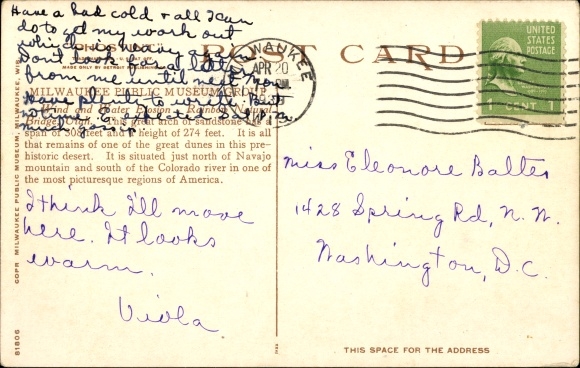 Have a bad cold & all I can
do to get my work out
which is heavy again
Don't look for a letter
from me until next Mon
Have plenty to write. But
no time. Expected
much gossip
POST CARD
MADE ONLY BY DETROIT
MILWAUKEE PUBLIC MUSEUM GROUP
Wind and Water Erosion — Rainbow Natural
Bridge, Utah. This great arch of sandstone has a
span of 308 feet and a height of 274 feet. It is all
that remains of one of the great dunes in this pre-
historic desert. It is situated just north of Navajo
mountain and south of the Colorado river in one of
the most picturesque regions of America.
I think I'll move
here. It looks
warm.
Viola
COPR. MILWAUKEE PUBLIC MUSEUM, MILWAUKEE, WIS.
81806
MILWAUKEE
APR 20
UNITED
STATES
POSTAGE
1 CENT 1
Miss Eleonore Baltes
1428 Spring Rd, N. W.
Washington, D.C.
THIS SPACE FOR THE ADDRESS